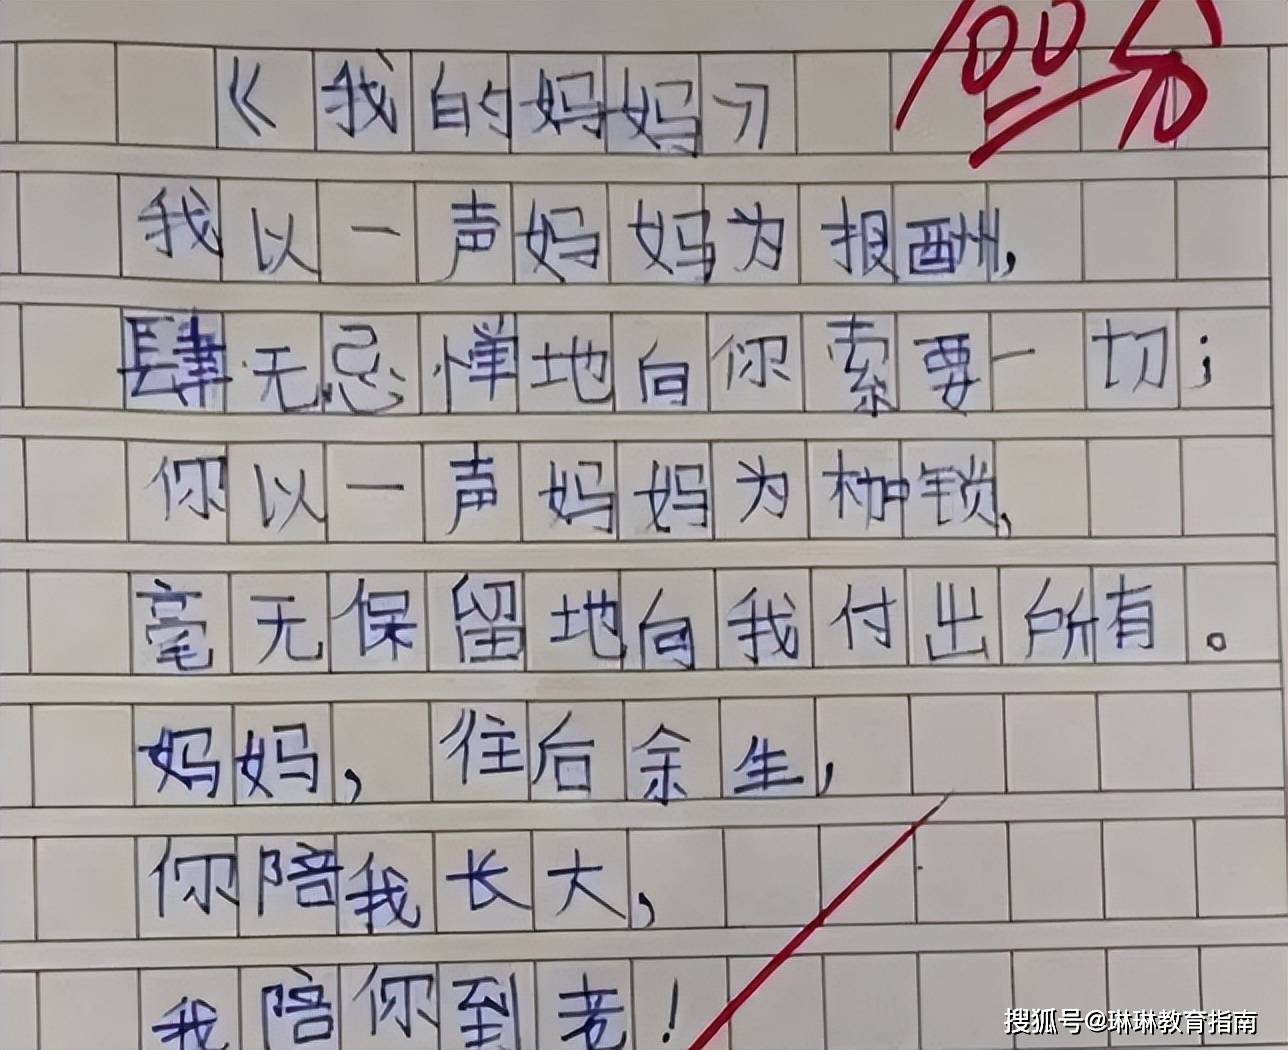 100分
《我的妈妈》
我以一声妈妈为报酬,
肆无忌惮地向你索要一切;
你以一声妈妈为枷锁,
毫无保留地向我付出所有。
妈妈,往后余生,
你陪我长大,
我陪你到老!
搜狐号@琳琳教育指南